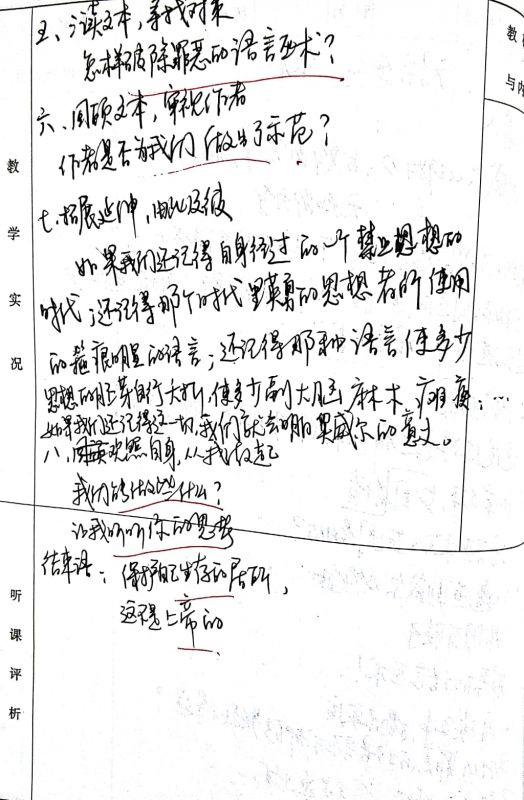 五、诵读文本，寻找对策
怎样破除罪恶的语言巫术？
六、回顾文本，审视作者
作者是否为我们做出了示范？
七、拓展延伸，由此及彼
如果我们还记得自身经过的一个禁止思想的
时代；还记得那个时代里英勇的思想者所使用
的 痕明显的语言；还记得那种语言使多少
思想的胚芽自行夭折，使多少副大脑麻木 痪；…
如果我们还记得这一切，我们就会明白奥威尔的意义。
八、回 观照自身，从我做起
我们能做些什么？
让我听听你的思考
结束语：保护自己生存的居所，
这是上帝的
教
学
实
况
听
课
评
析
教
与内